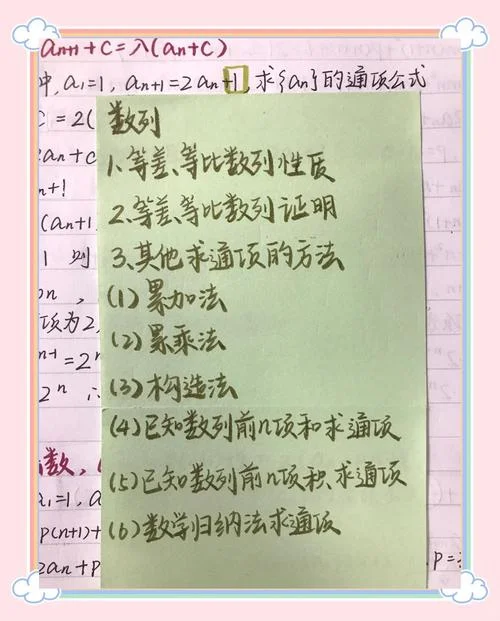 an+1+C=λ(an+C)
中,a₁=1, an+1=2an+1,求{an}的通项公式
C=2(
2an+C
n+1
(an+1
1 则
项为2,
n+1=2ⁿ
2ⁿ
数列
1、等差、等比数列性质
2、等差、等比数列证明
3、其他求通项的方法
(1)累加法
(2)累乘法
(3)构造法
(4)已知数列前n项和求通项
(5)已知数列前n项积,求通项
(6)数学归纳法求通项
a₁=1, a
p(n+1)+
2an+p
p=